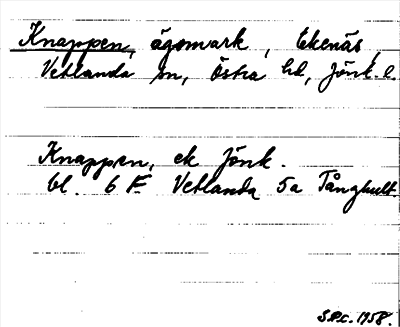 Knappen, ägomark, Ekenäs,
Vetlanda sn, Östra hd, Jönk. l.
Knappen, ek Jönk.
bl. 6 F Vetlanda 5a Tånghult.
S.P.c. 1958.